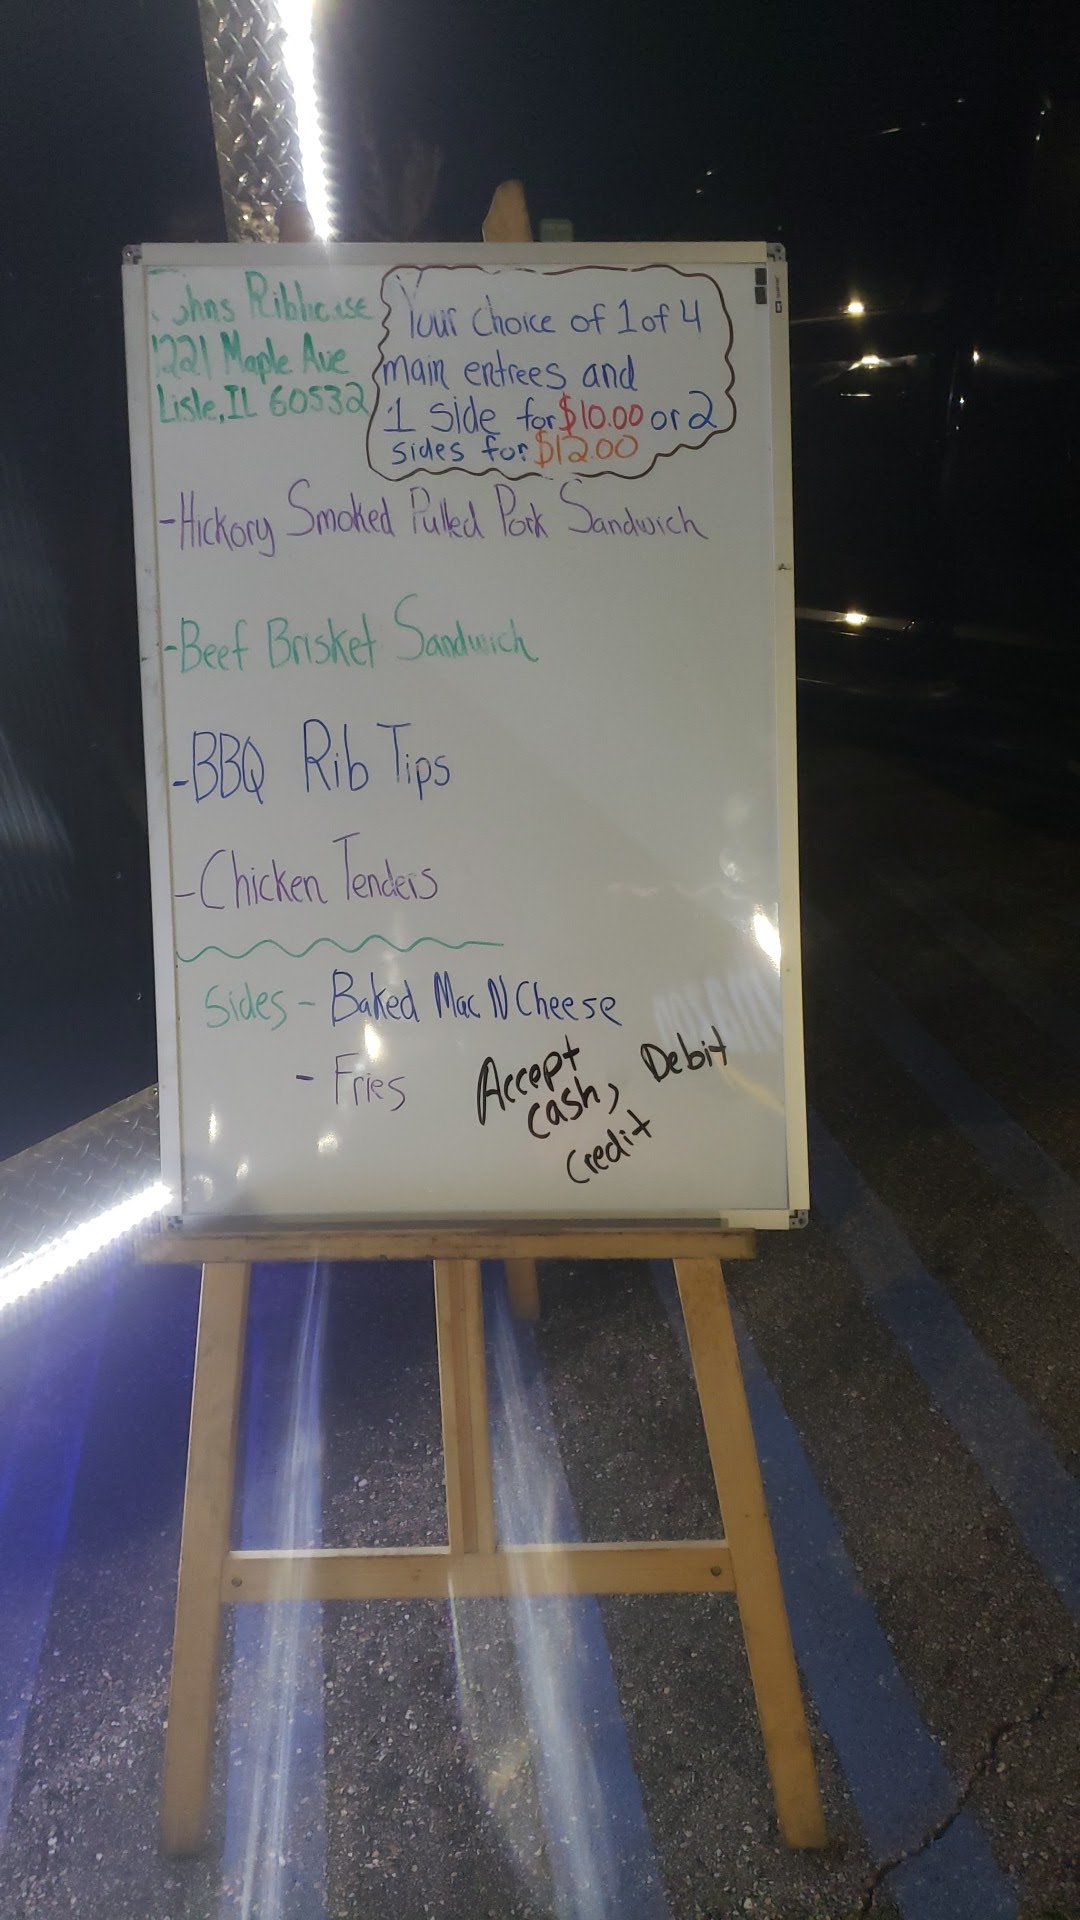 Johns Ribhouse
1221 Maple Ave
Lisle, IL 60532
Your choice of 1 of 4
main entrees and
1 side for $10.00 or 2
sides for $12.00
-Hickory Smoked Pulled Pork Sandwich
-Beef Brisket Sandwich
-BBQ Rib Tips
-Chicken Tenders
Sides - Baked Mac N Cheese
- Fries
Accept
cash, Debit
Credit